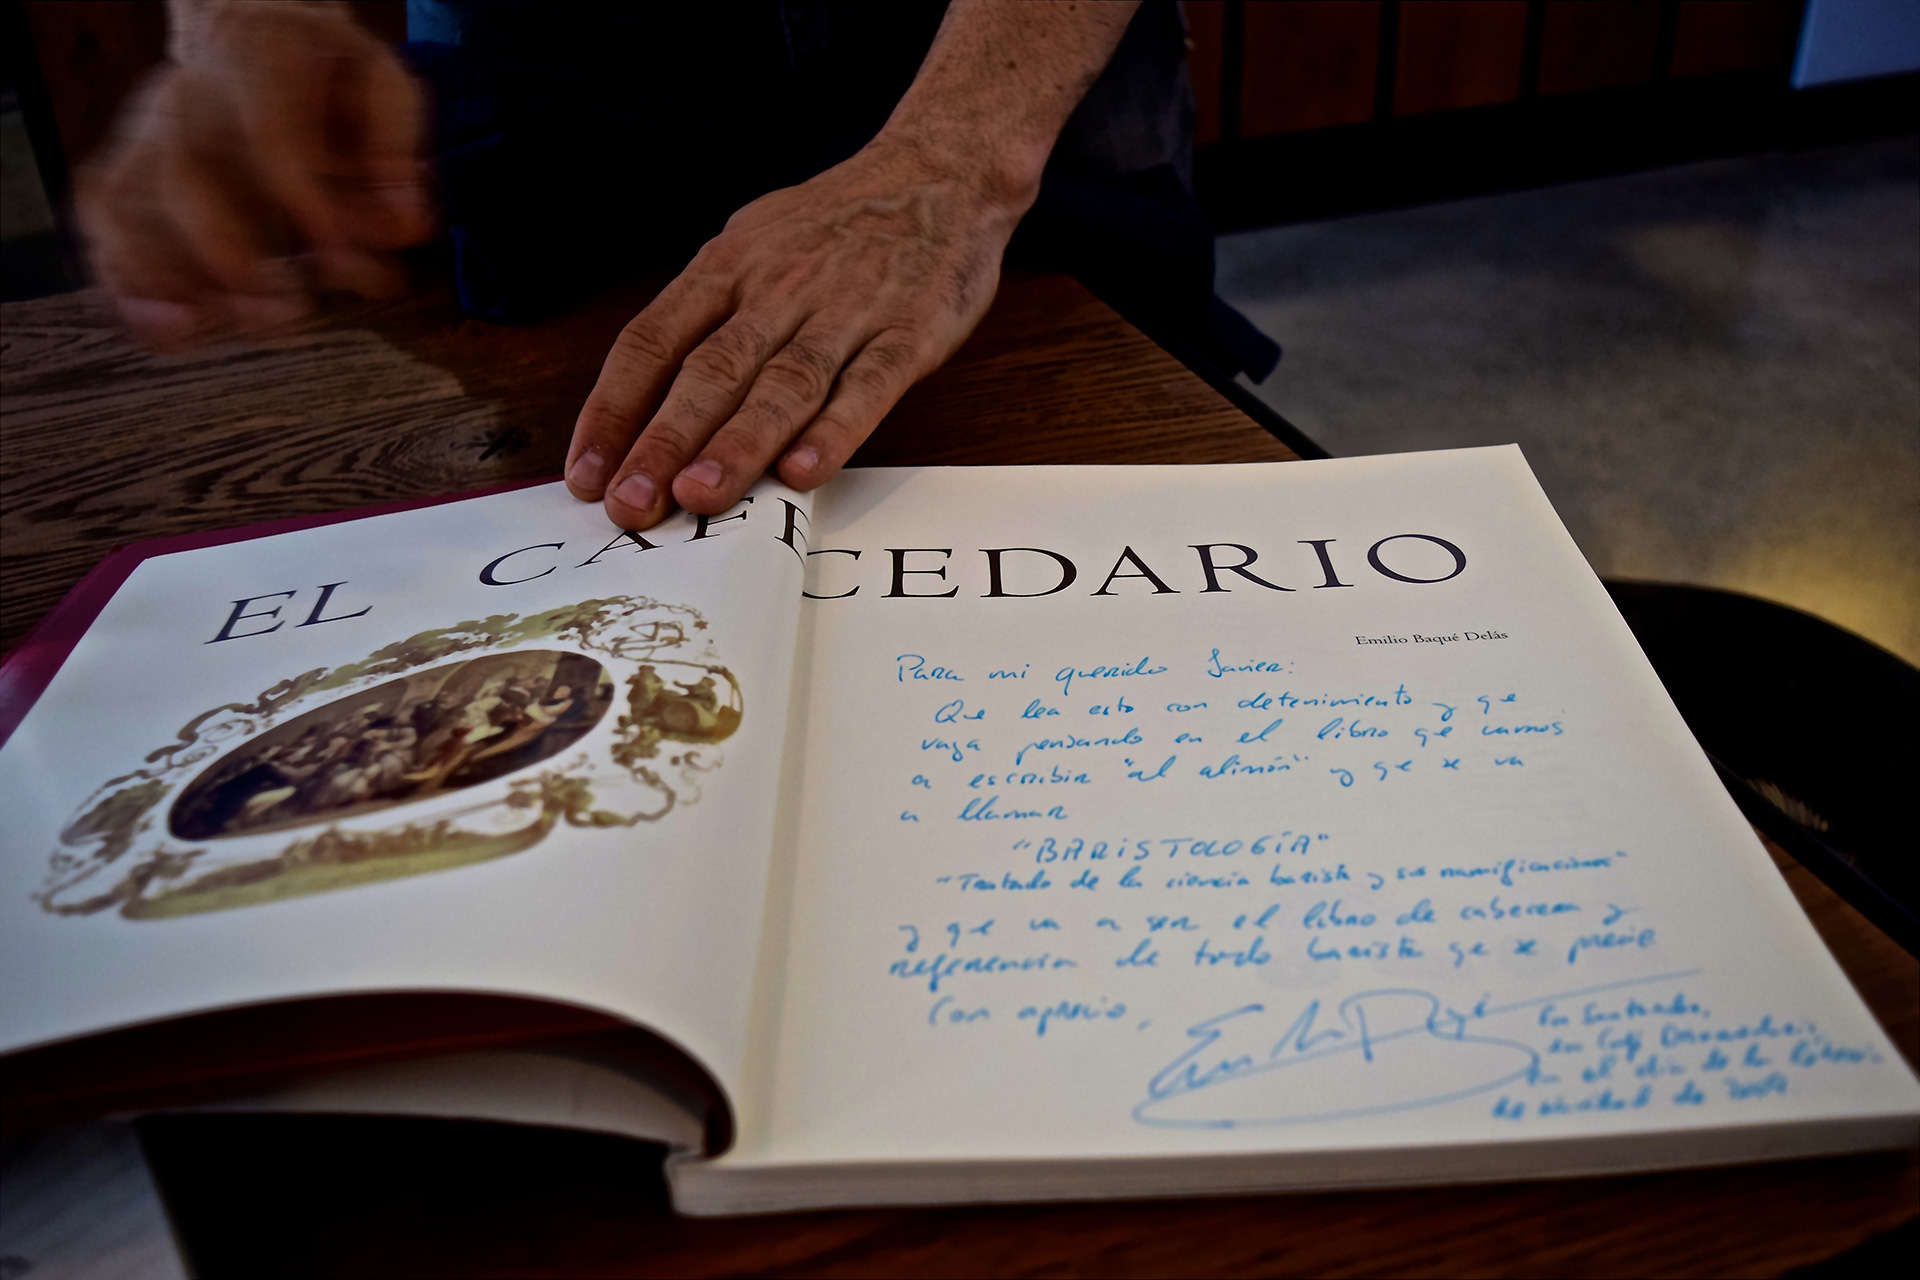 EL CAFE CEDARIO
Emilio Baqué Delás
Para mi querido Javier:
Que lea esto con detenimiento y que
vaya pensando en el libro qe vamos
a escribir "al alimón" y qe se va
a llamar
"BARISTOLOGÍA"
"Tratado de la ciencia barista y sus ramificaciones"
y qe va a ser el libro de cabecera y
referencia de todo barista qe se precie
Con aprecio,
En Santander,
en Café
en el día de la
de de